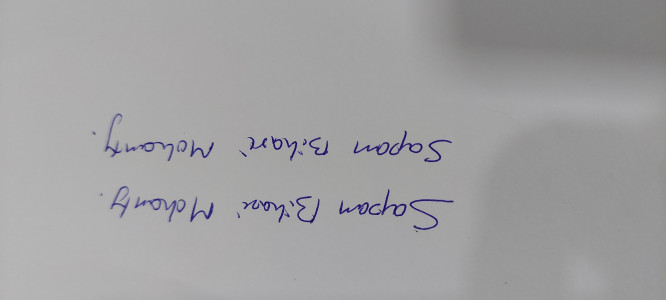 Sapan Bihari Mohanty.
Sapan Bihari Mohanty.